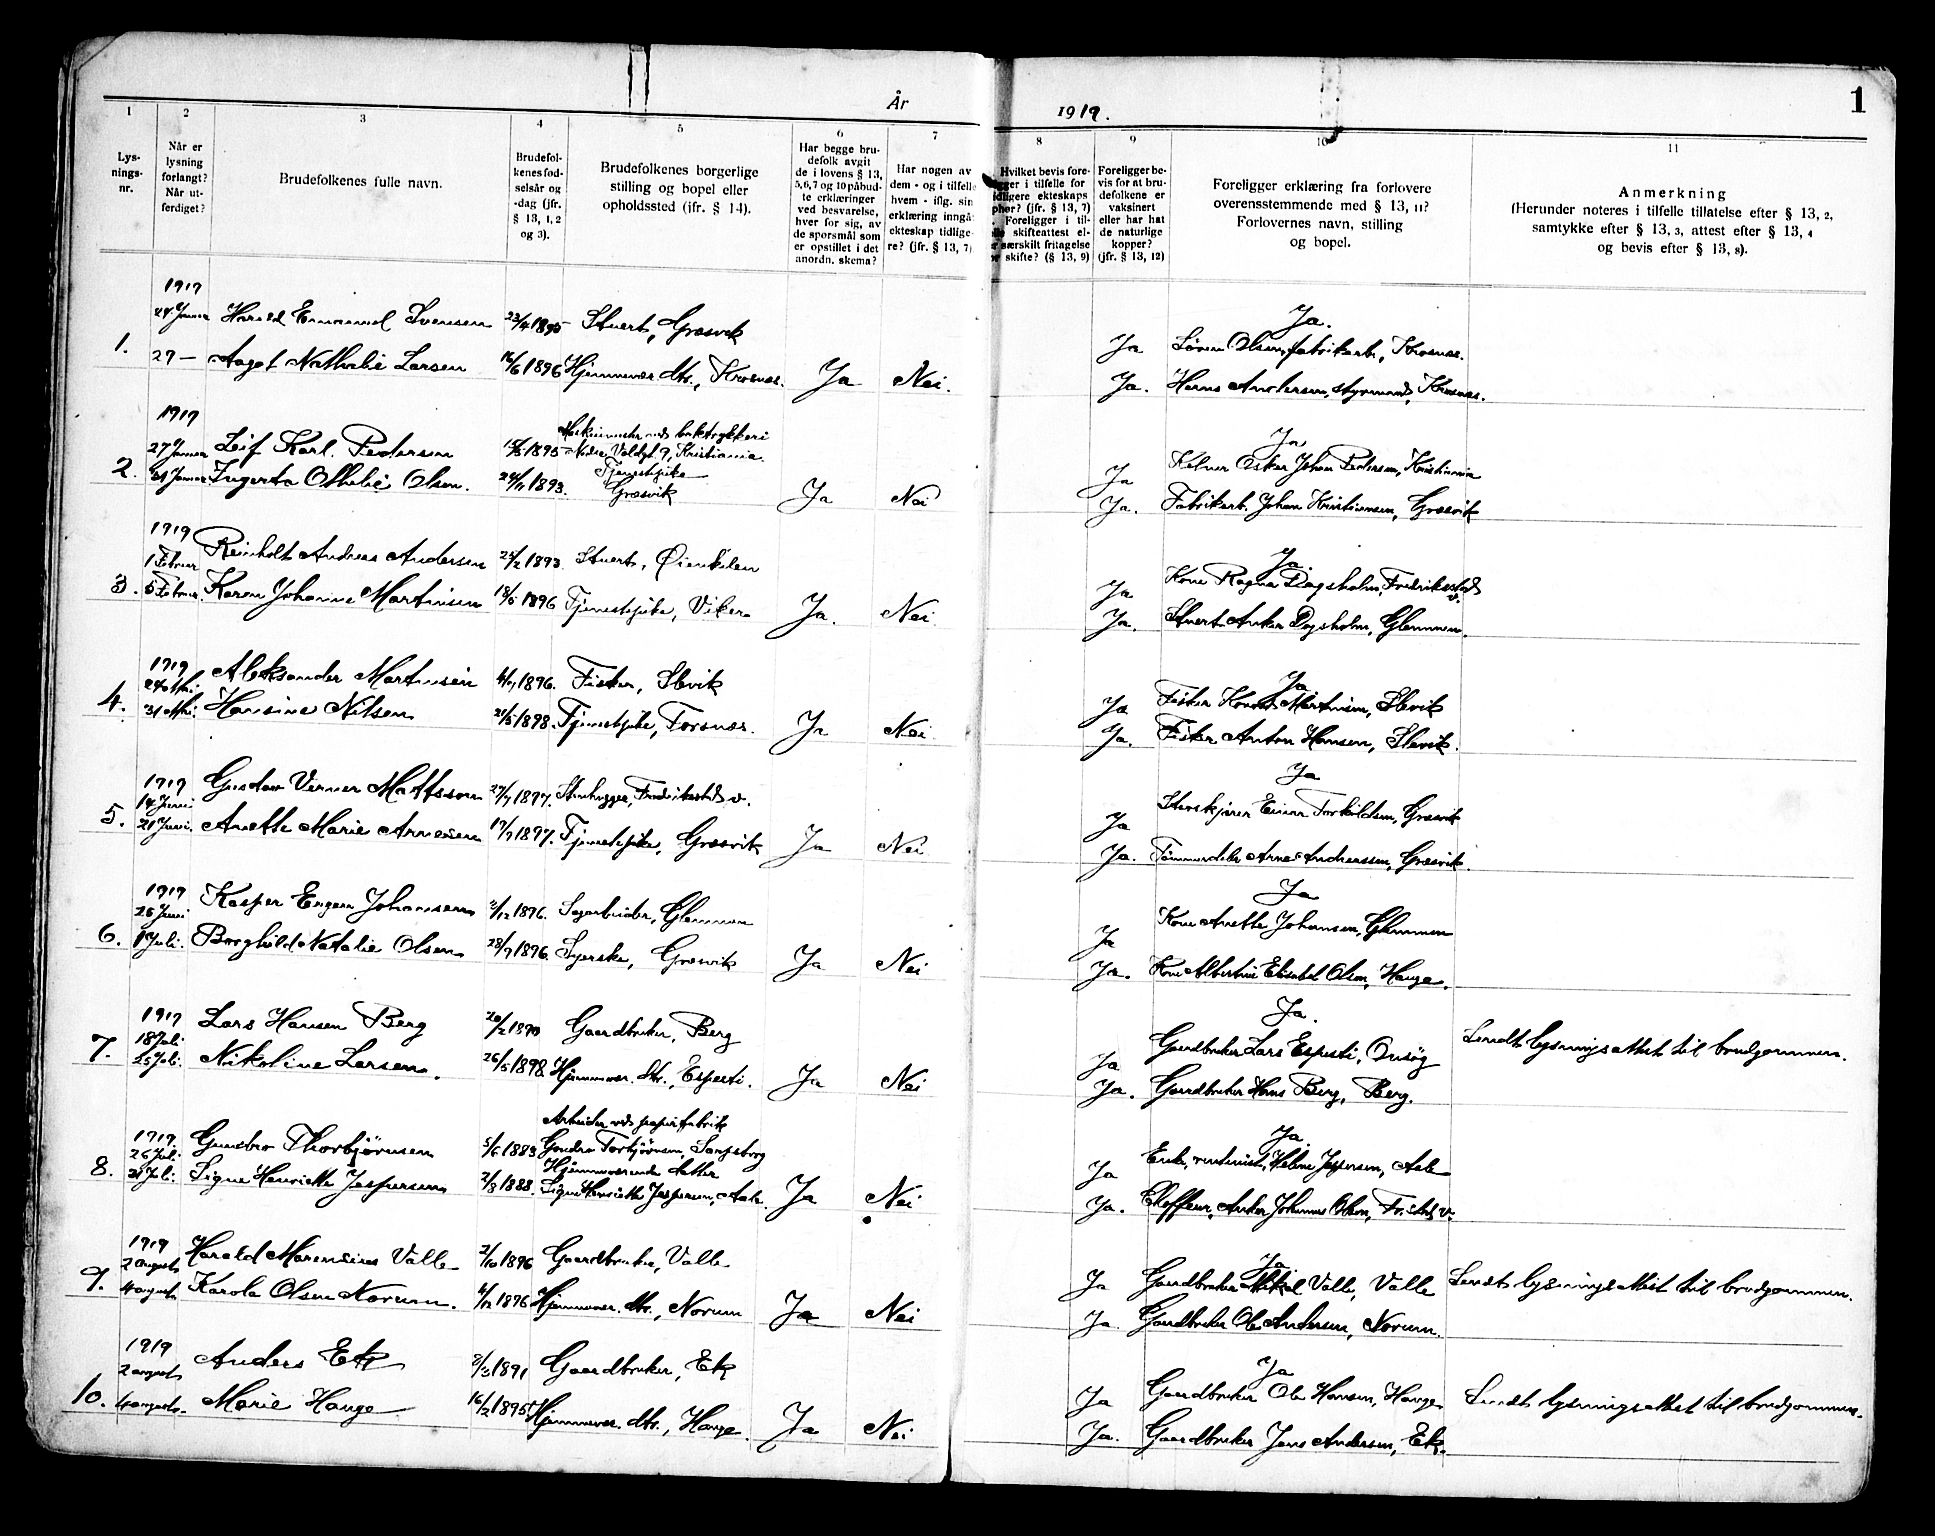 År 1919.
1
1 2 3 4 5 6 7 8 9 10 11
Lys-
nings-
nr.
Når er
lysning
forlangt?
Når ut-
ferdiget?
Brudefolkenes fulle navn.
Brudefol-
kenes fød-
selsår og
-dag (jfr.
§ 13, 1, 2
og 3).
Brudefolkenes borgerlige
stilling og bopel eller
opholdssted (ifr. § 14).
Har begge bru-
defolk avgit
de i lovens § 13,
5, 6, 7 og 10 påbud-
te erklæringer
ved besvarelse,
hver for sig, av
de spørsmål som
er opstillet i det
anordn. skema?
Har nogen av
dem - og i tilfelle
hvem - iflg. sin
erklæring inngå
ekteskap tidlige-
re? (jfr. § 13, 7)
Hvilket bevis fore-
ger i tilfelle for
idligere ekteskaps
phør? (jfr. § 13, 7)
Foreligger i til-
skifteattest el-
særskilt fritagelse
skifte? (§ 13, 9)
Foreligger be-
vis for at bru-
defolkene er
vaksinert
eller har hat
de naturlige
kopper?
(jfr. § 13, 12)
Foreligger erklæring fra forlovere
overensstemmende med § 13, 11?
Forlovernes navn, stilling
og bopel.
Anmerkning
(Herunder noteres i tilfelle tillatelse efter § 13, 2,
samtykke efter § 13, 3, attest efter § 13, 4
og bevis efter § 13, 8).
1919
Ja.
Harald Emanuel Svensen 23/4 1895 Stuert, Græsvik Ja Søren Olsen, fabrikarb., Krosnæs.
1. 29 — Aagot Nathalie Larsen 16/6 1896 Hjemmevær. dtr., Krosnæs. Ja Nei. Ja. Hans Andersen, styrmand, Krosnæs.
1919
Ja
27 Januar Leif Karl Pedersen 1895 Maskinmester ved boktrykkeri
Nedre Voldgt 9, Kristiania. Ja Kelner Oskar Johan Pedersen, Kristiania
2. 31 Januar Ingerta Othelie Olsen. 1893. Tjenestepike
Græsvik Ja Nei Ja. Fabrikarb. Johan Kristiansen, Græsvik
1919
Ja.
1 Februar Reinholt Andreas Andersen 25/2 1893. Stuert, Øienkilen Ja Kone Ragna Dagsholm, Fredrikstad v.
3. 5 Februar. Karen Johanne Martinsen 18/5 1896 Tjenestepike, Viker Ja. Nei Ja. Stuert Anker Dagsholm, Glemmen.
1919
Ja
24 Mai Aleksander Martinsen 1896. Fisker, Slevik Ja Fisker Konrad Martinsen, Slevik
4. 31 Mai. Hansine Nilsen 21/5 1898. Tjenestepike, Torsnæs. Ja Nei Ja. Fisker Anton Hansen, Slevik.
1919
Ja
14 Juni Gustav Verner Mattsson 27/7 1897. Stenhugger, Fredrikstad v. Ja Stenskjærer Einar Torkildsen, Græsvik
5. 21 Juni. Anette Marie Arnesen 17/7 1897. Tjenestepike, Græsvik Ja Nei Ja. Tømmerdeler Arne Andreassen, Græsvik.
1919
Ja
25 Juni Kasper Eugen Johansen 2/12 1896. Sagarbeider, Glemmen Ja Kone Anette Johansen, Glemmen
6. 1 Juli. Borghild Natalie Olsen 28/7 1896. Syerske, Græsvik Ja Nei Ja. Kone Albertine Elisabet Olsen, Hauge.
1919
Ja.
18 Juli Lars Hansen Berg Gaardbruker, Berg Ja Gaardbruker Lars Espesti, Onsøy Sendt lysningsattest til brudgommen.
7. 25 Juli. Nikoline Larsen. 26/5 1898 Hjemmevær. dtr., Espesti. Ja Nei Ja. Gaardbruker Hans Berg, Berg.
1919
Ja.
26 Juli. Gundro Thorbjørnsen 5/6 1883 Arbeider ved papirfabrik
Gundro Torbjørnsen, Sarpsborg Ja Enke, Helene Jespersen, Aale
8. 31 Juli. Signe Henriette Jespersen 2/8 1888. Hjemmeværende datter
Signe Henriette Jespersen, Aale. Ja Nei Ja. Chaffeur, Anker Johannes Olsen, Fr.stad v.
1919
Ja.
2 august Harald Marensius Valle 2/10 1896 Gaardbruker, Valle Ja Gaardbruker Mikal Valle, Valle Sendt lysningsattest til brudgommen.
9. 4 august Karola Olsen Norum. 4/12 1896 Hjemmevær. dtr., Norum Ja Nei Ja. Gaardbruker Ole Andersen, Norum.
1919
Ja
2 august Anders Ek 1891 Gaardbruker, Ek Ja Gaardbruker Ole Hansen, Hauge Sendt lysningsattest til brudgommen.
10. 4 august. Marie Hauge 16/2 1895 Hjemmevær. dtr., Hauge. Ja Nei Ja. Gaardbruker Jens Andersen, Ek.